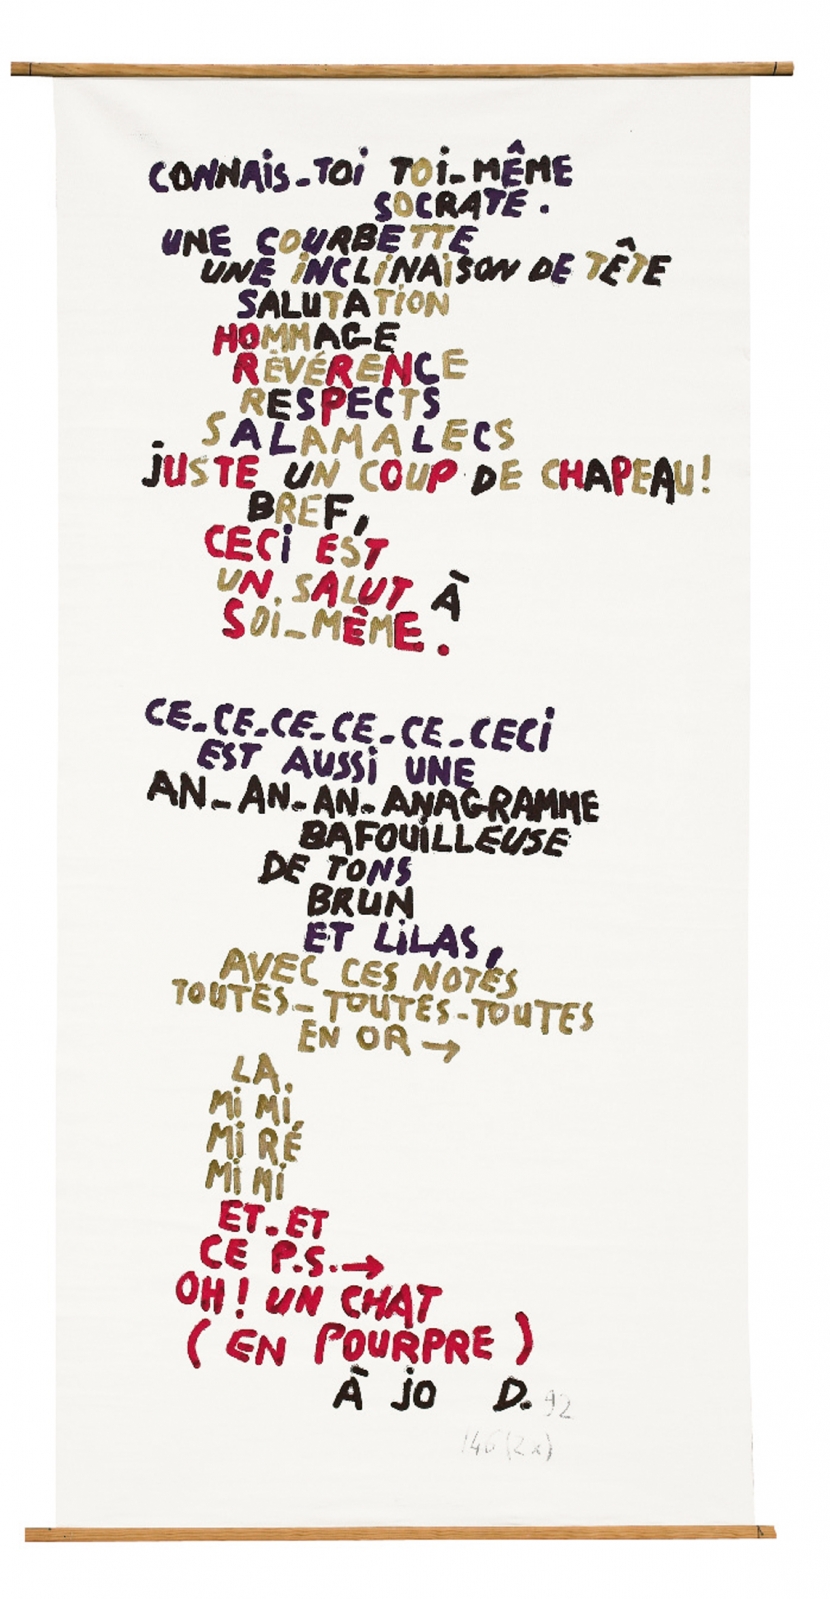 CONNAiS-TOi TOi-MÊME
SOCRATE.
UNE COURBETTE
UNE iNCLiNAiSON DE TÊTE
SALUTATiON
HOMMAGE
RÉVÉRENCE
RESPECTS
SALAMALECS
jUSTE UN COUP DE CHAPEAU!
BREF,
CECi EST
UN SALUT À
SOi-MÊME.
CE-CE-CE-CE-CE-CECi
EST AUSSi UNE
AN-AN-AN-ANAGRAMME
BAFOUiLLEUSE
DE TONS
BRUN
ET LiLAS,
AVEC CES NOTES
TOUTES-TOUTES-TOUTES
EN OR →
LA,
Mi Mi,
Mi RÉ
Mi Mi
ET-ET
CE P.S.→
OH! UN CHAT
(EN POURPRE)
À jO D. 92